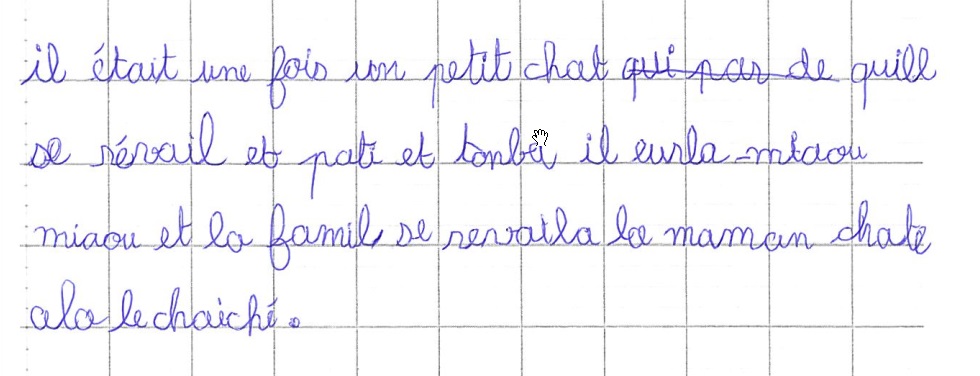 il était une fois un petit chat qui par de quill
se révail et pati et tonba il eurla miaou
miaou et la famil se revaila la maman chate
ala le chaiché.